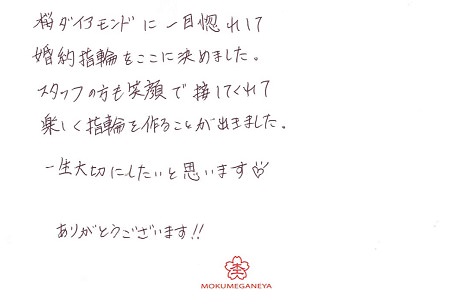 桜ダイアモンドに一目惚れして
婚約指輪をここに決めました。
スタッフの方も笑顔で接してくれて
楽しく指輪を作ることが出来ました。
一生大切にしたいと思います♡
ありがとうございます!!
MOKUMEGANEYA